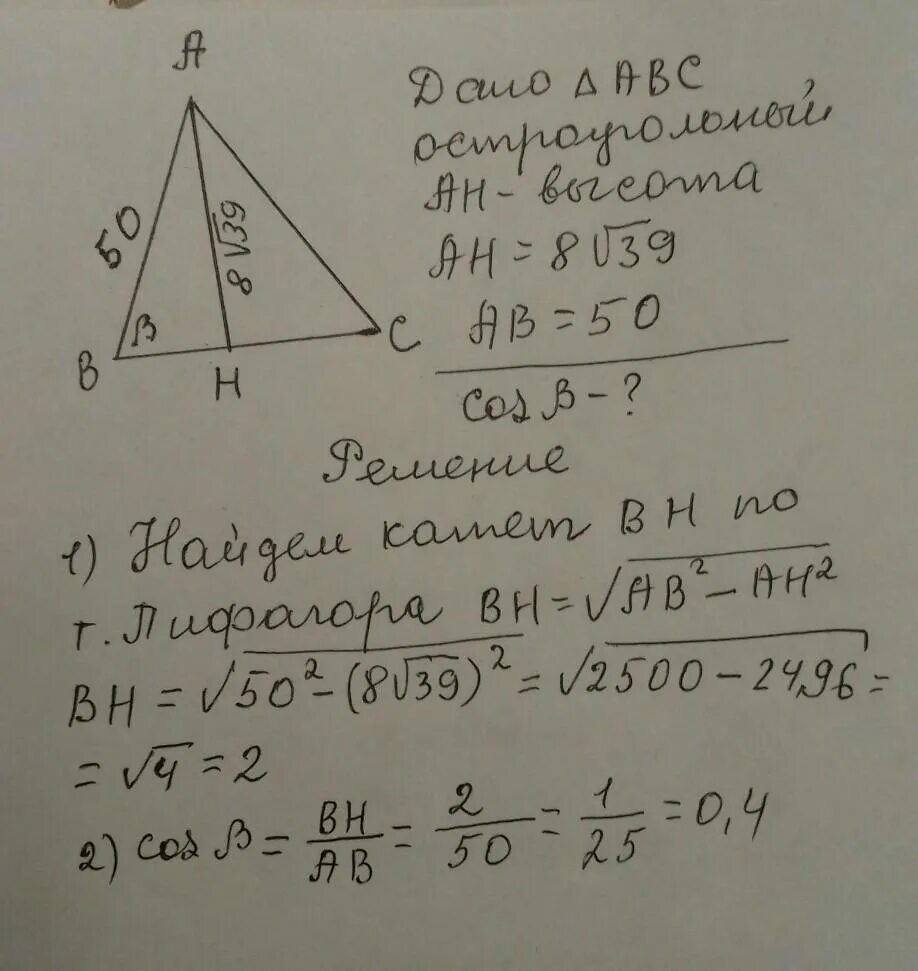 A
50
8√39
B
B
H
C
Дано △ABC
остроугольный
AH - высота
AH = 8√39
AB = 50
cos B - ?
Решение
1) Найдем катет BH по
т. Пифагора BH = √AB² - AH²
BH = √50² - (8√39)² = √2500 - 2496 =
= √4 = 2
2) cos B = BH/AB = 2/50 = 1/25 = 0,4